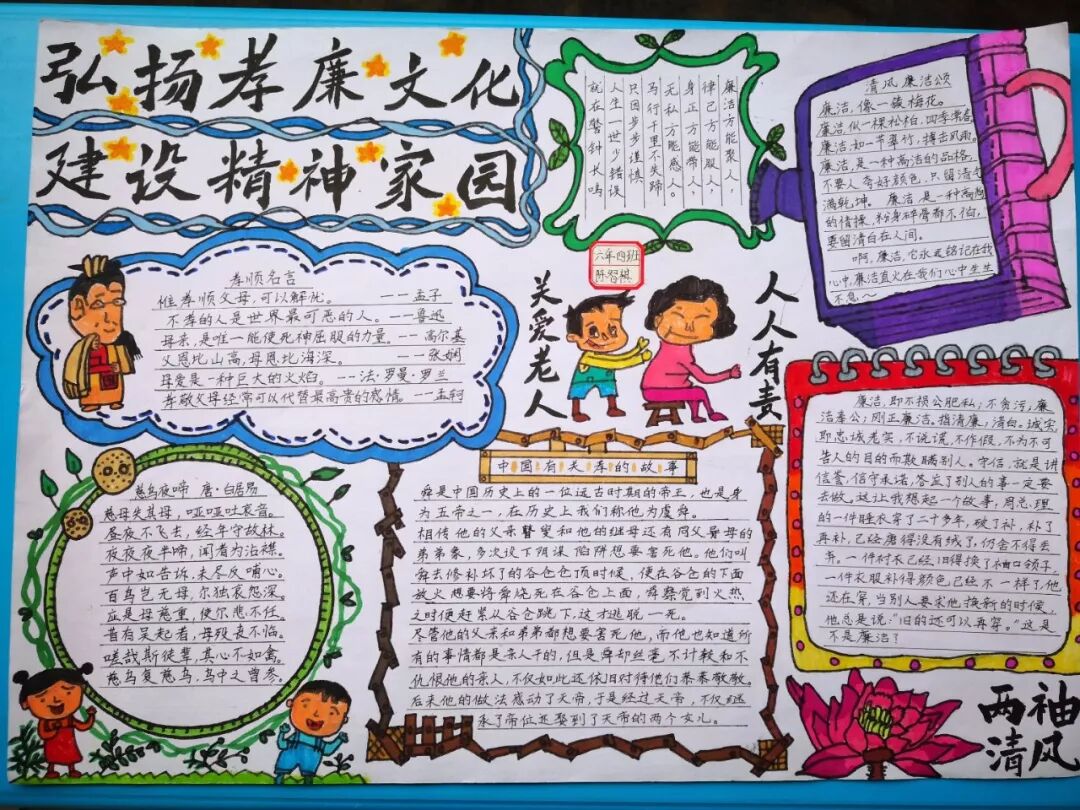 弘扬孝廉文化
建设精神家园
廉洁方能聚人，
律己方能服人；
身正方能带人，
无私方能感人。
马行千里不失蹄
只因步步谨慎
人生一世少错误
就在警钟长鸣
清风廉洁颂
廉洁，像一簇梅花。
廉洁，似一棵松柏，四季常春
廉洁，如一节翠竹，搏击风雨。
廉洁，是一种高洁的品格，
不要人夸好颜色，只留清气
满乾坤。廉洁，是一种高尚
的情操，粉身碎骨都不怕，
要留清白在人间。
啊，廉洁，它永远铭记在我
心中，廉洁直火在我们心中生生
不息～
六年四班
陈智祺
孝顺名言
惟孝顺父母，可以解忧。 ——孟子
不孝的人是世界最可恶的人。——鲁迅
母亲，是唯一能使死神屈服的力量。——高尔基
父恩比山高，母恩比海深。 ——张娴
母爱是一种巨大的火焰。——法·罗曼·罗兰
孝敬父母经常可以代替最高贵的感情。——孟轲
关爱老人
人人有责
慈乌夜啼 唐·白居易
慈乌失其母，哑哑吐哀音。
昼夜不飞去，经年守故林。
夜夜夜半啼，闻者为沾襟。
声中如告诉，未尽反哺心。
百鸟岂无母，尔独哀怨深。
应是母慈重，使尔悲不任。
昔有吴起者，母殁丧不临。
嗟哉斯徒辈，其心不如禽。
慈乌复慈乌，鸟中之曾参。
中国有关孝的故事
舜是中国历史上的一位远古时期的帝王，也是身
为五帝之一，在历史上我们称他为虞舜。
相传他的父亲瞽叟和他的继母还有同父异母的
弟弟象，多次设下阴谋陷阱想要害死他。他们叫
舜去修补坏了的谷仓仓顶时候，便在谷仓的下面
放火想要将舜烧死在谷仓上面，舜察觉到火热
之时便赶紧从谷仓跳下，这才逃脱一死。
尽管他的父亲和弟弟都想要害死他，而他也知道所
有的事情都是亲人干的，但是舜却丝毫不计较和不
仇恨他的亲人，不仅如此还依旧对待他们恭恭敬敬。
后来他的做法感动了天帝，于是经过天帝，不仅继
承了帝位还娶到了天帝的两个女儿。
廉洁，即不损公肥私；不贪污，廉
洁奉公；刚正廉洁。指清廉；清白。诚实
即忠诚老实，不说谎，不作假，不为不可
告人的目的而欺瞒别人。守信，就是讲
信誉，信守承诺，答应了别人的事一定要
去做。这让我想起一个故事，周总理
的一件睡衣穿了二十多年，破了补，补了
再补，已经磨得没有绒了，仍舍不得丢
弃。一件衬衣已经旧得换了袖口领子，
一件衣服补得颜色已经不一样了，他
还在穿，当别人要求他换新的时候，
他总是说：“旧的还可以再穿。”这是
不是廉洁？
两袖
清风